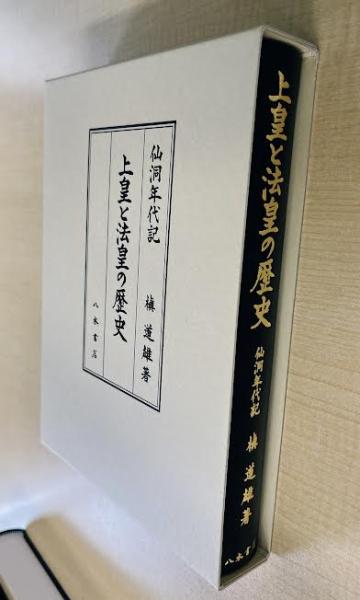 仙洞年代記
上皇と法皇の歴史
槇道雄著
八木書店
上皇と法皇の歴史
仙洞年代記
槇道雄著
八木書